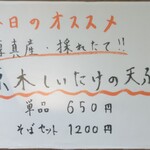 日のオススメ
真産・採れたて!!
原木しいたけの天ぷ
単品 650円
そばセット 1200円